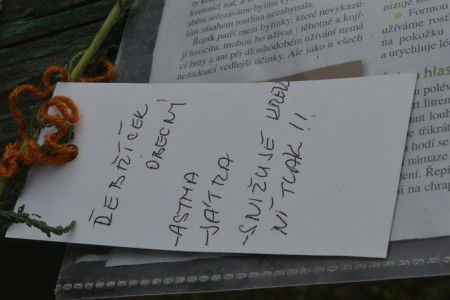 květoucí nať, a tu
sběru seřezáváme bylinu vysuše-
lím zásadou rostlina nezahynula.
Řepík patří mezi bylinky, které nevykazu-
jí toxicitu, mohou ho užívat i těhotné a kojí-
cí ženy a ani při dlouhodobém užívání nemá
nežádoucí vedlejší účinky. Ale jako u všech
Formou
užíváme rost
na pokožku
a urychluje lé
hlas
polév
litrem
nout loub
třikrát
hodí se
námaze
ení. Řepí
na chrap
ŘEBŘÍČEK
OBECNÝ
-ASTMA
-JÁTRA
-SNIŽUJE KREV
NÍ TLAK!!